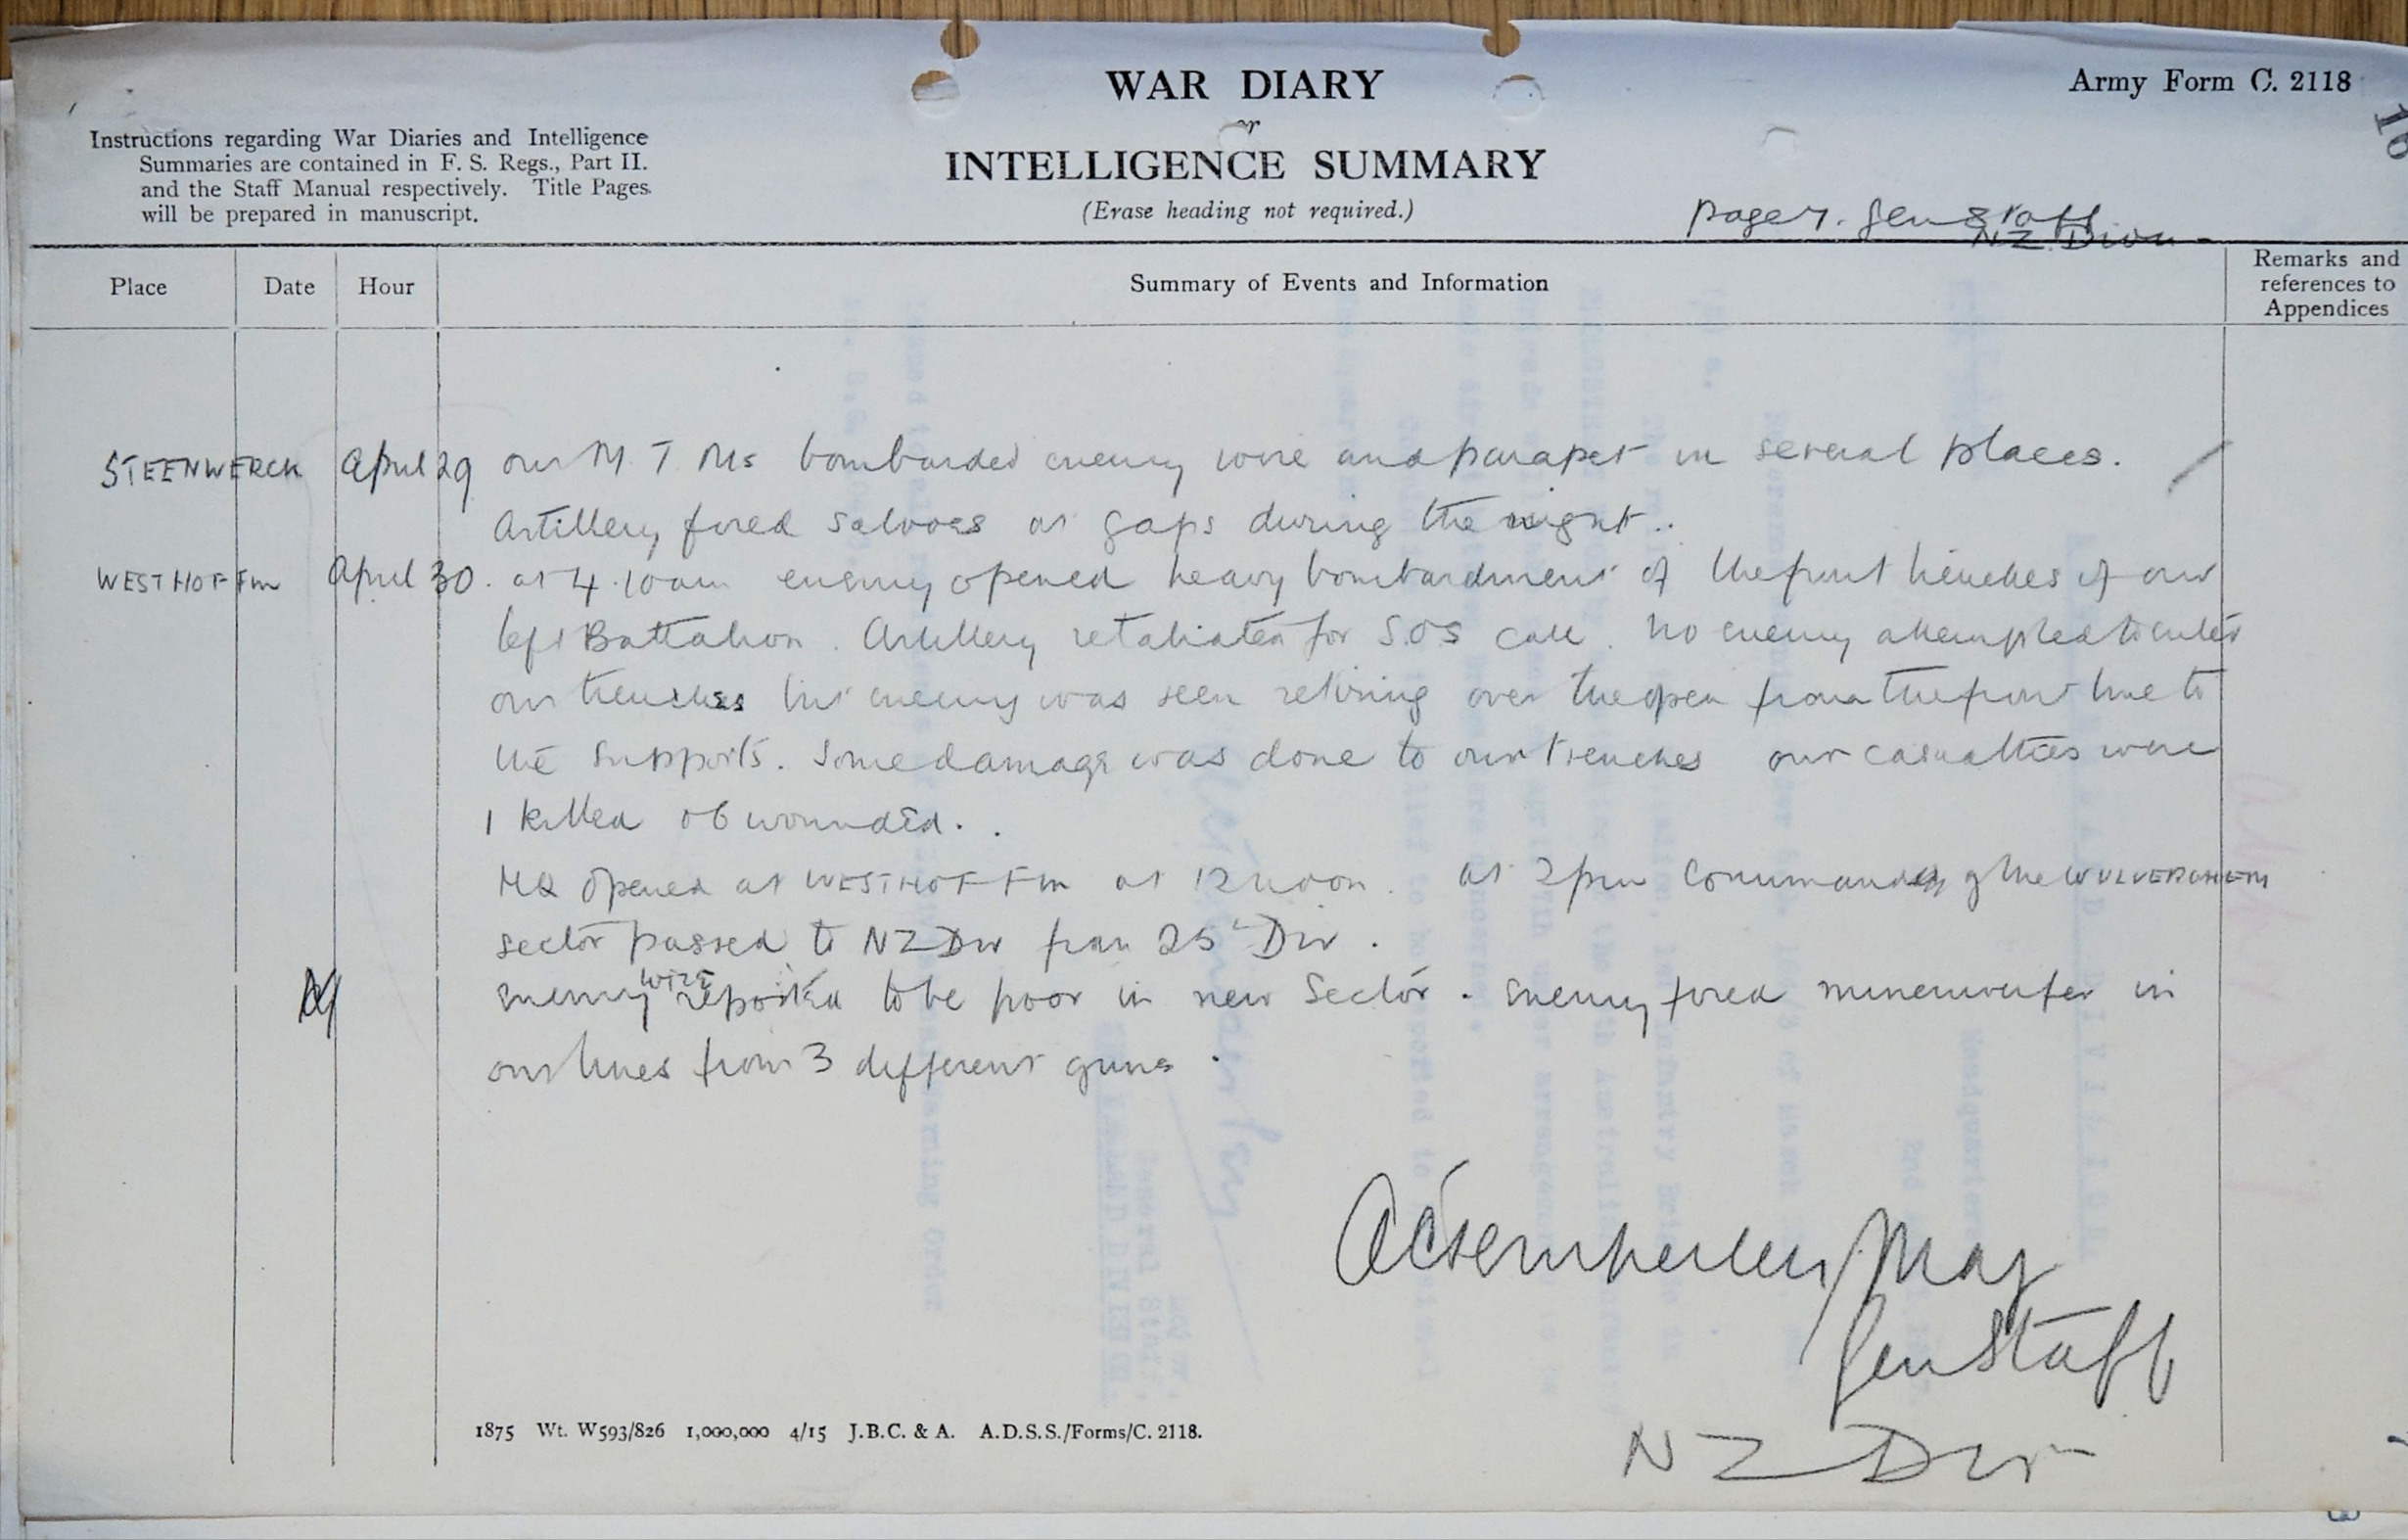 WAR DIARY
or
INTELLIGENCE SUMMARY
(Erase heading not required.)
Army Form C. 2118
16
Instructions regarding War Diaries and Intelligence
Summaries are contained in F. S. Regs., Part II.
and the Staff Manual respectively. Title Pages
will be prepared in manuscript.
page 7. Gen Staff
NZ Divn
Place Date Hour Summary of Events and Information Remarks and references to Appendices
STEENWERCK April 29 our M T Ms bombarded enemy wire and parapet in several places.
Artillery fired salvoes at gaps during the night..
WESTHOF Fm April 30. at 4.10 am enemy opened heavy bombardment of the front trenches of our
left Battalion. Artillery retaliated for S.O.S call. No enemy attempted to enter
our trenches but enemy was seen retiring over the open from the front line to
the supports. Some damage was done to our trenches our casualties were
1 killed 6 wounded.
HQ opened at WESTHOF Fm at 12 noon. at 2pm Command of the WULVERGHEM
sector passed to NZ Div from 25 Div.
Enemy wire reported to be poor in new Sector. Enemy fired minenwerfer in
our lines from 3 different guns.
Maj
Gen Staff
NZ Div
1875 Wt. W593/826 1,000,000 4/15 J.B.C. & A. A.D.S.S./Forms/C. 2118.